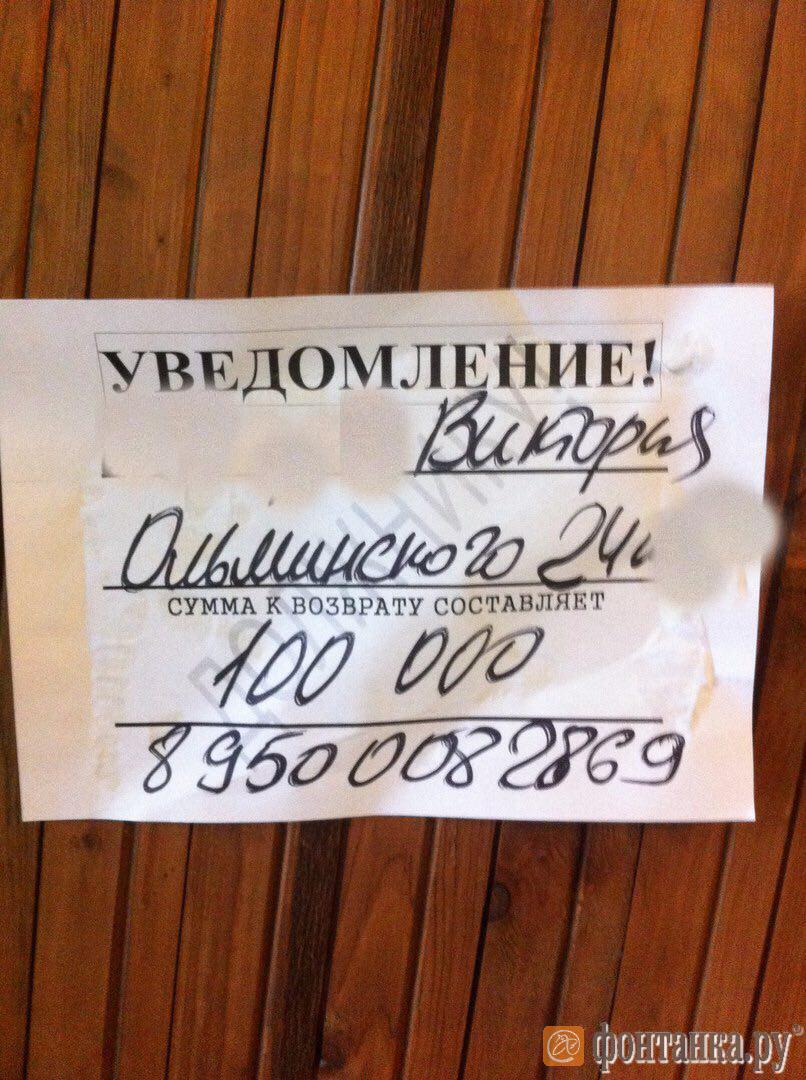 УВЕДОМЛЕНИЕ!
Виктория
Ольминского 24
СУММА К ВОЗВРАТУ СОСТАВЛЯЕТ
100 000
8 950 008 2869
ДОЛЖНИКУ!
фонтанка.ру